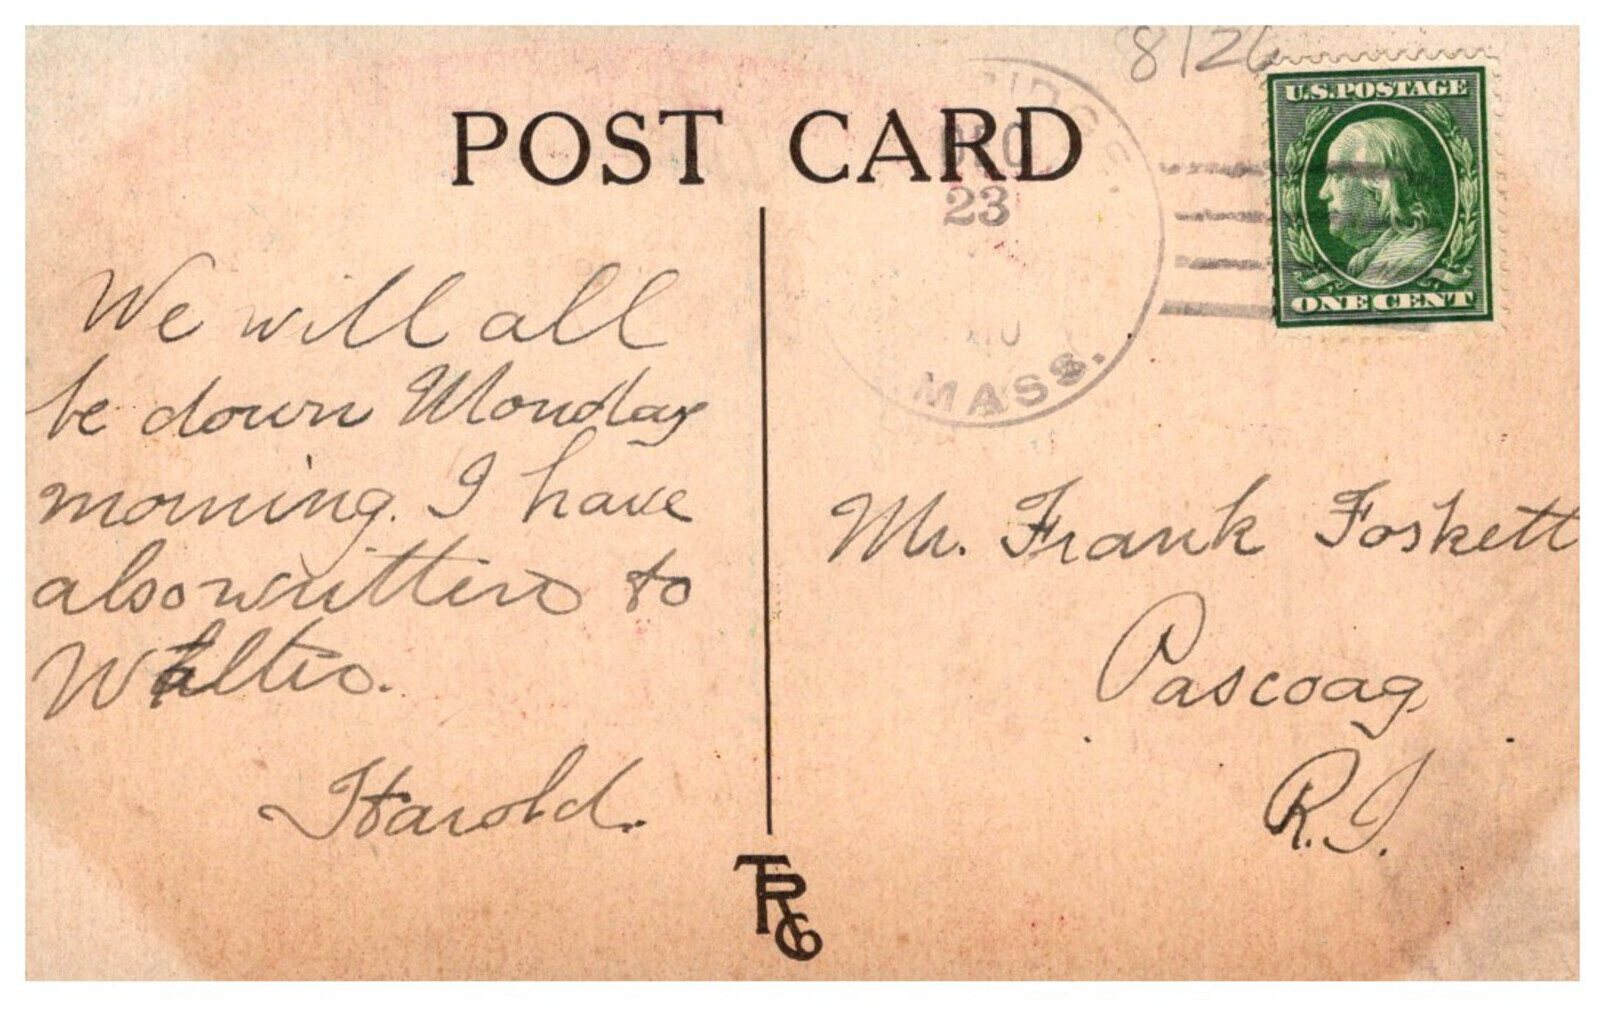 8126
U.S.POSTAGE
POST CARD
DEC
23
ONE CENT
MASS.
We will all
be down Monday
morning. I have
also written to
Mr. Frank Foskett
Pascoag
R.I.
Harold.